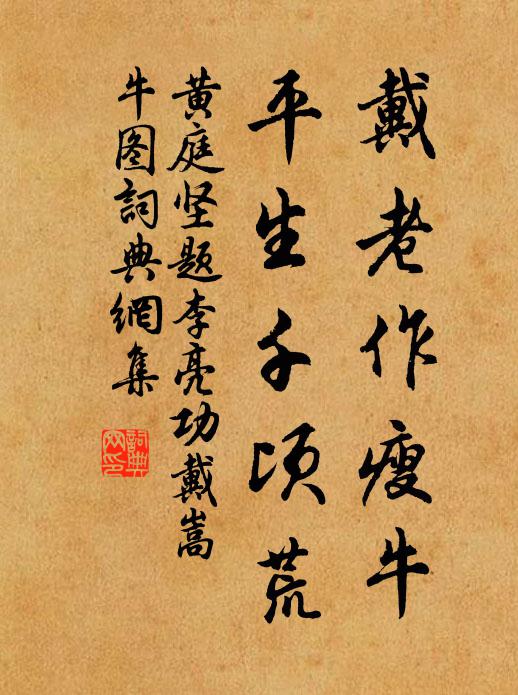 戴老作瘦牛
平生千顷荒
黄庭坚题李亮功戴嵩
牛图詞典網集
詞典网印